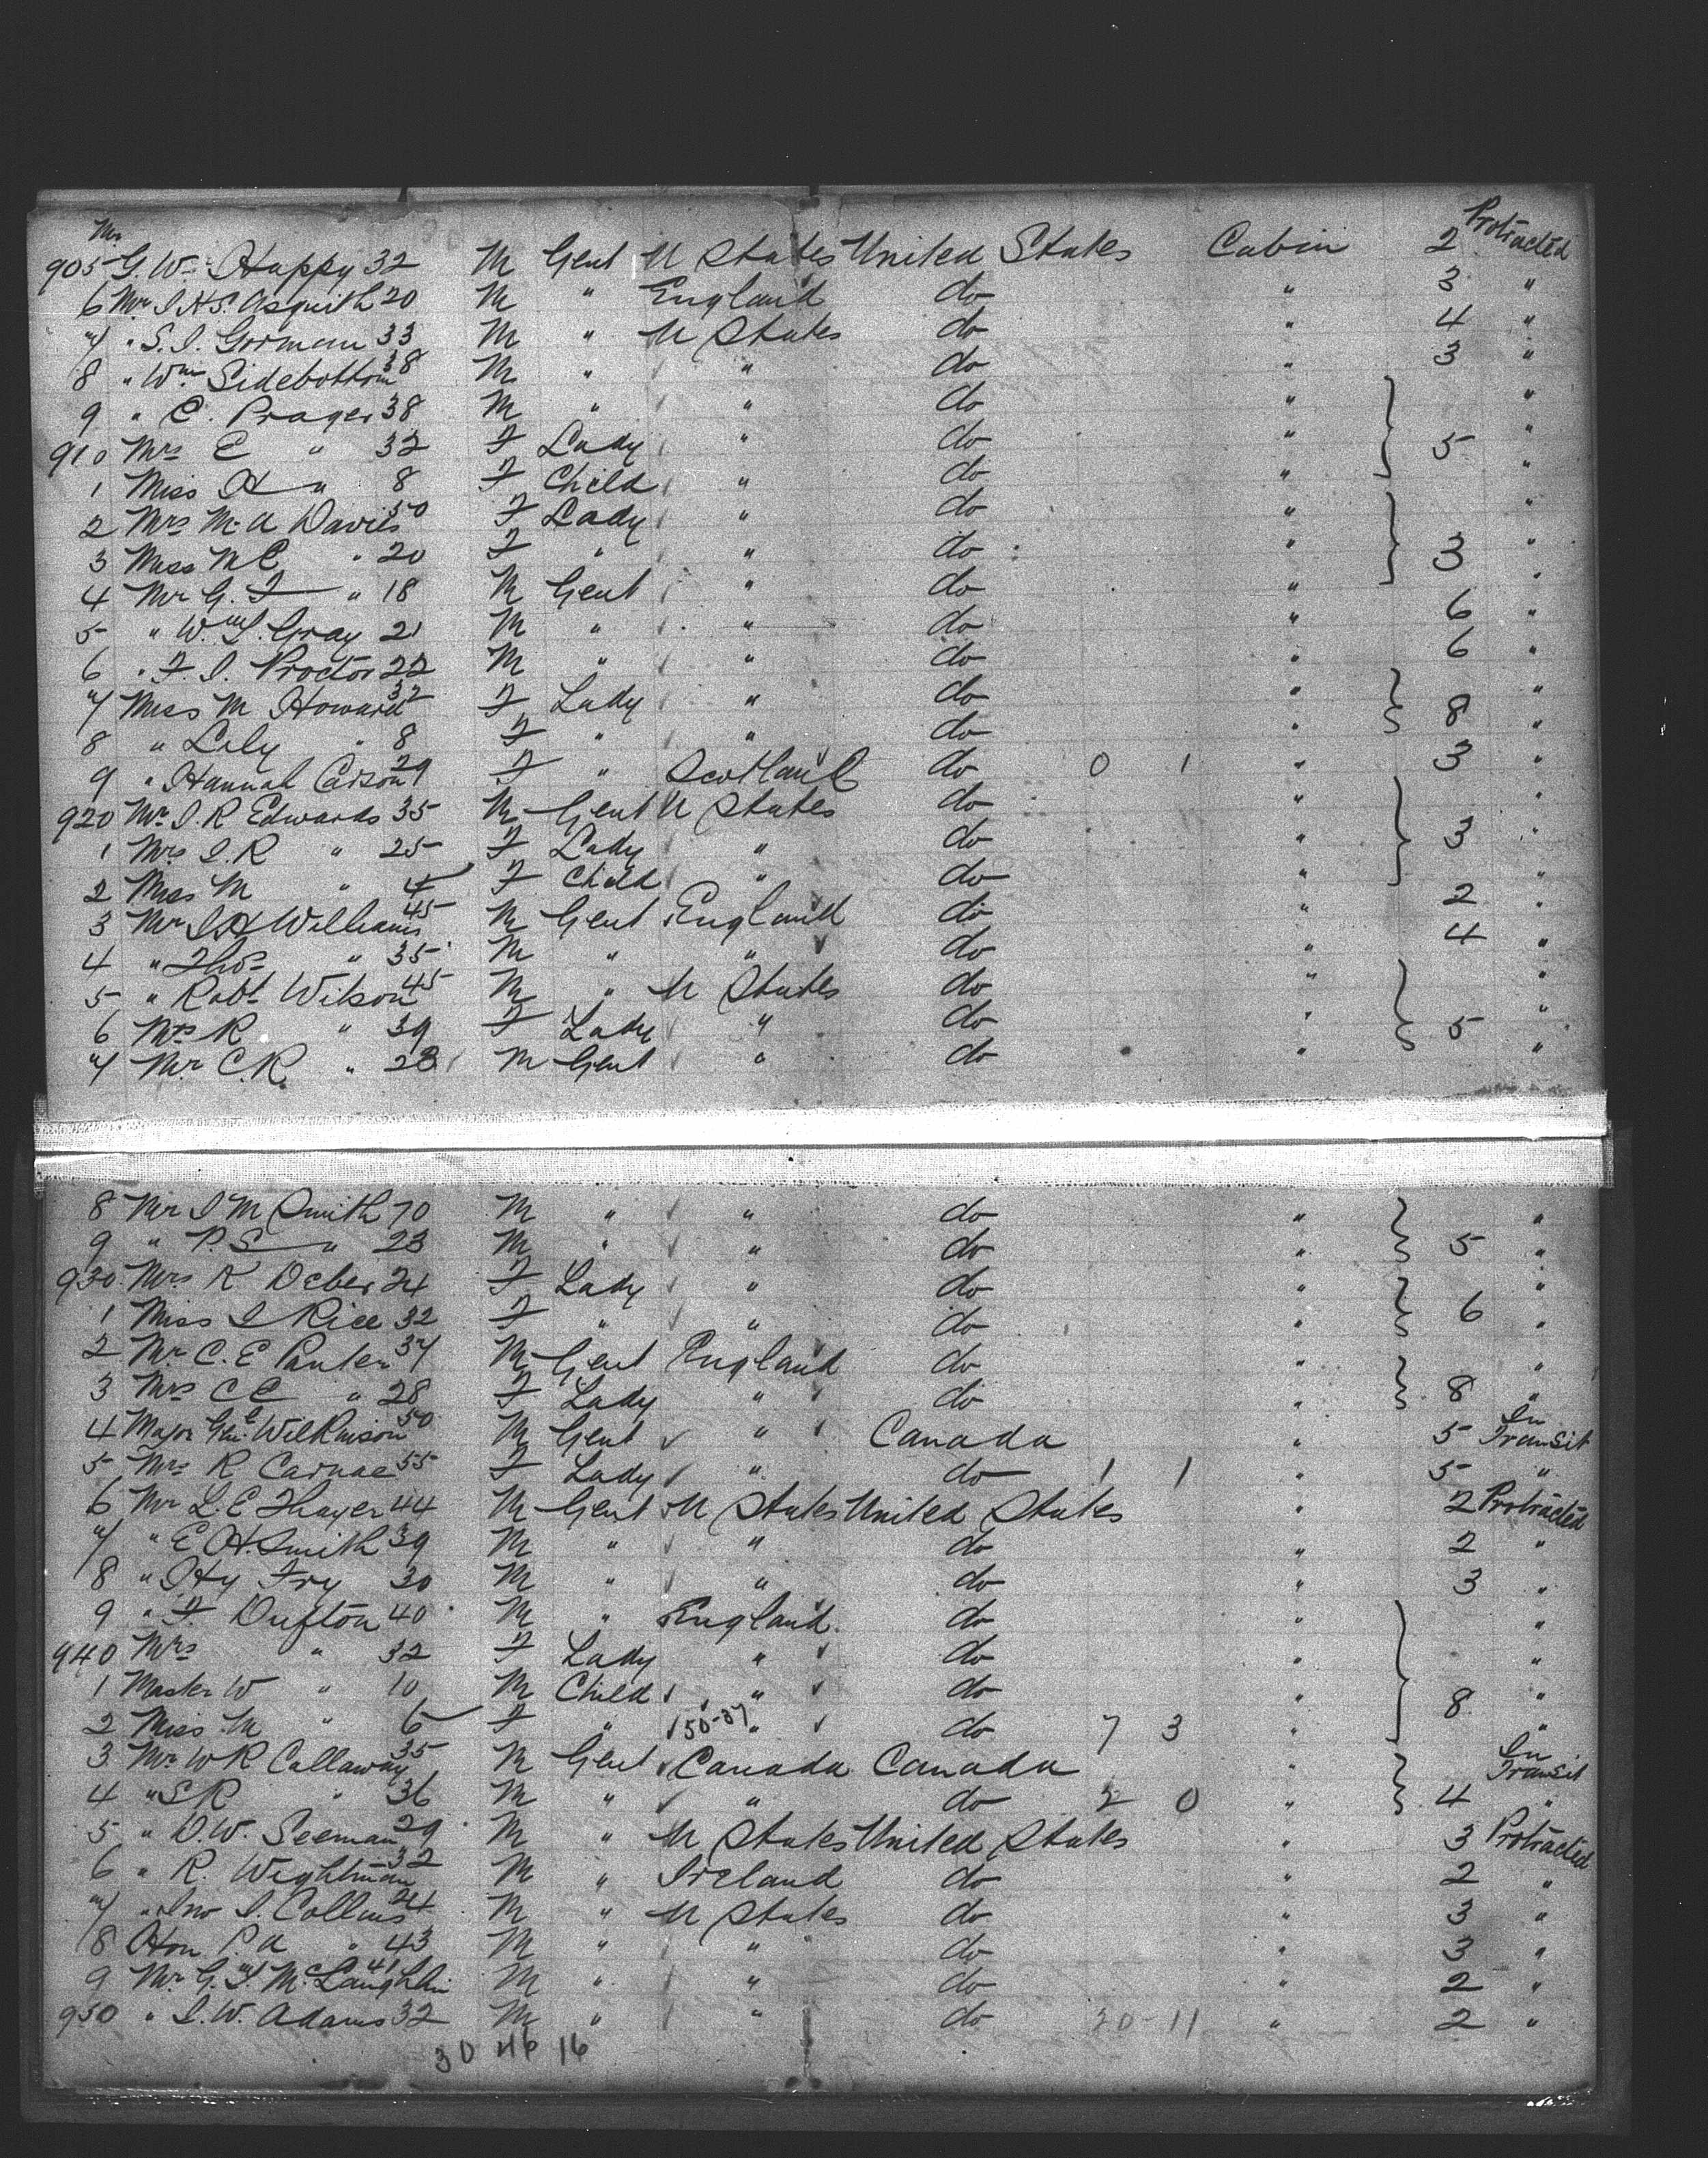 Mr Protracted
905 G. W. Happy 32 M Gent U States United States Cabin 2
6 Mr I H S. Asquith 20 M " England do " 3 "
7 " S. I. Gorman 33 M " U States do " 4 "
8 " Wm Sidebottom 38 M " " do " 3 "
9 " E. Prager 38 M " " do " "
910 Mrs E " 32 F Lady " do " 5 "
1 Miss H " 8 F Child " do " "
2 Mrs M. A Davies 50 F Lady " do " "
3 Miss M E " 20 F " " do " 3 "
4 Mr G. F " 18 M Gent " do " "
5 " Wm S. Gray 21 M " " do " 6 "
6 " F. I. Proctor 22 M " " do " 6 "
7 Miss M Howard 32 F Lady " do " "
8 " Lily " 8 F " " do " 8 "
9 " Hannah Carson 29 F " Scotland do 0 1 " 3 "
920 Mr I. R Edwards 35 M Gent U States do " "
1 Mrs I. R " 25 F Lady " do " 3 "
2 Miss M " 4 F Child " do " "
3 Mr I H Williams 45 M Gent England do " 2 "
4 " Thos " 35 M " " do " 4 "
5 " Robt Wilson 45 M " U States do " "
6 Mrs R " 39 F Lady " do " 5 "
7 Mr C. R. " 23 M Gent " do " "
8 Mr I M Smith 70 M " " do " "
9 " P. S " 23 M " " do " 5 "
930 Mrs R Deber 24 F Lady " do " "
1 Miss I Rice 32 F " " do " 6 "
2 Mr C. E Panter 37 M Gent England do " "
3 Mrs C E " 28 F Lady " do " 8 "
4 Major Genl Wilkinson 50 M Gent " Canada " 5 In Transit
5 Mrs R Carnac 55 F Lady " do 1 1 " 5 "
6 Mr L. E Thayer 44 M Gent U States United States " 2 Protracted
7 " E H. Smith 39 M " " do " 2 "
8 " Hy Fry 30 M " " do " 3 "
9 " F Dufton 40 M " England do " "
940 Mrs " 32 F Lady " do " "
1 Master W " 10 M Child " do " "
2 Miss M " 6 F " 50-37 " do 7 3 " 8 "
3 Mr W R Callaway 35 M Gent Canada Canada " In Transit
4 " S R " 36 M " " do 2 0 " 4 "
5 " D. W. Seeman 29 M " U States United States " 3 Protracted
6 " R. Wightman 32 M " Ireland do " 2 "
7 " Jno I. Collins 24 M " U States do " 3 "
8 Hon P. A " 43 M " " do " 3 "
9 Mr G. McLaughlin 41 M " " do " 2 "
950 " I. W. Adams 32 M " " do 20-11 " 2 "
30 46 16